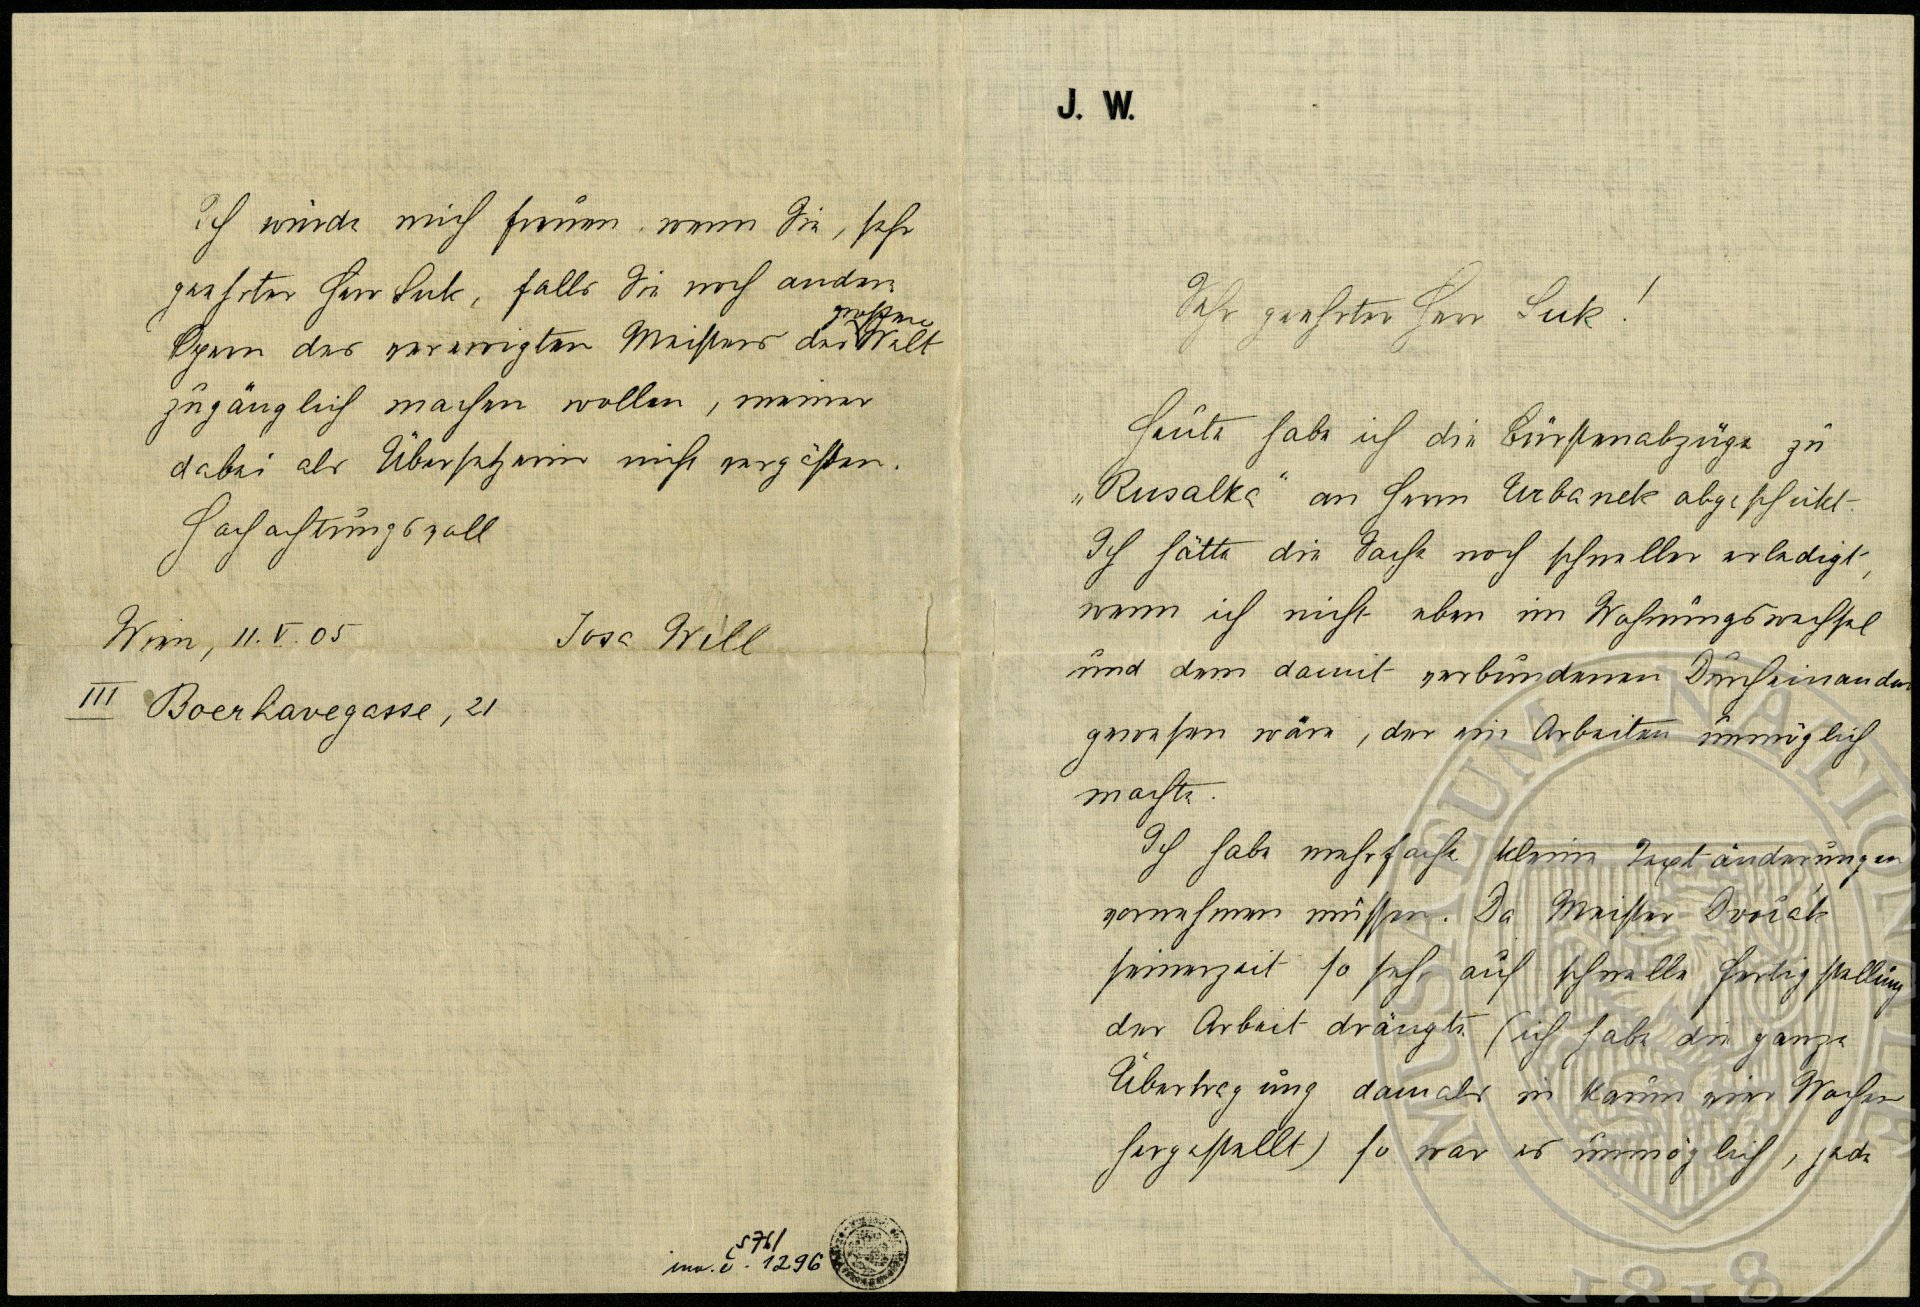 J. W.
Sehr geehrter Herr Suk!
Heute habe ich die Bürstenabzüge zu
„Rusalka“ an Herrn Urbanek abgeschickt.
Ich hätte die Sache noch schneller erledigt,
wenn ich nicht eben im Wohnungswechsel
und dem damit verbundenen Durcheinander
gewesen wäre, der ein Arbeiten unmöglich
machte.
Ich habe mehrfache kleine Textänderungen
vornehmen müssen. Da Meister Dvořák
seinerzeit so sehr auf schnelle Fertigstellung
der Arbeit drängte (ich habe die ganze
Übertragung damals in kaum vier Wochen
hergestellt) so war es unmöglich, jede
Ich würde mich freuen, wenn Sie, sehr
geehrter Herr Suk, falls Sie noch andere
Opern des verewigten Meisters der grossen Welt
zugänglich machen wollen, meiner
dabei als Übersetzerin nicht vergässen.
Hochachtungsvoll
Wien, 11. V. 05 Josa Will
III Boerhavegasse, 21
S76/
inv. č. 1296
MUSAEUM NATIONALE
1818